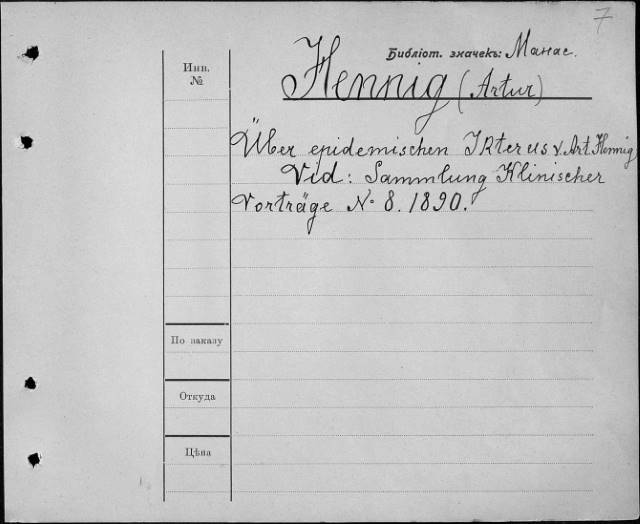 7
Библіот. значекъ: Манас.
Инв.
№
Hennig (Artur)
Über epidemischen IKterus v. Art. Hennig
Vid: Sammlung Klinischer
Vorträge № 8. 1890.
По заказу
Откуда
Цѣна